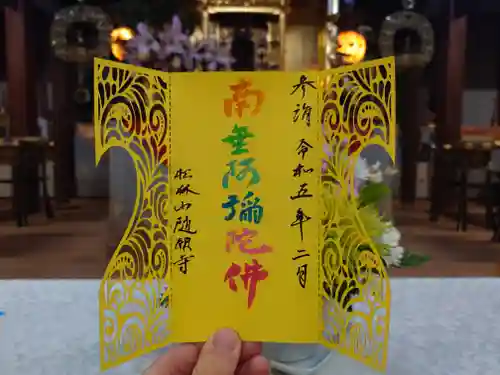 参詣 令和五年二月
南無阿弥陀佛
松林山随願寺